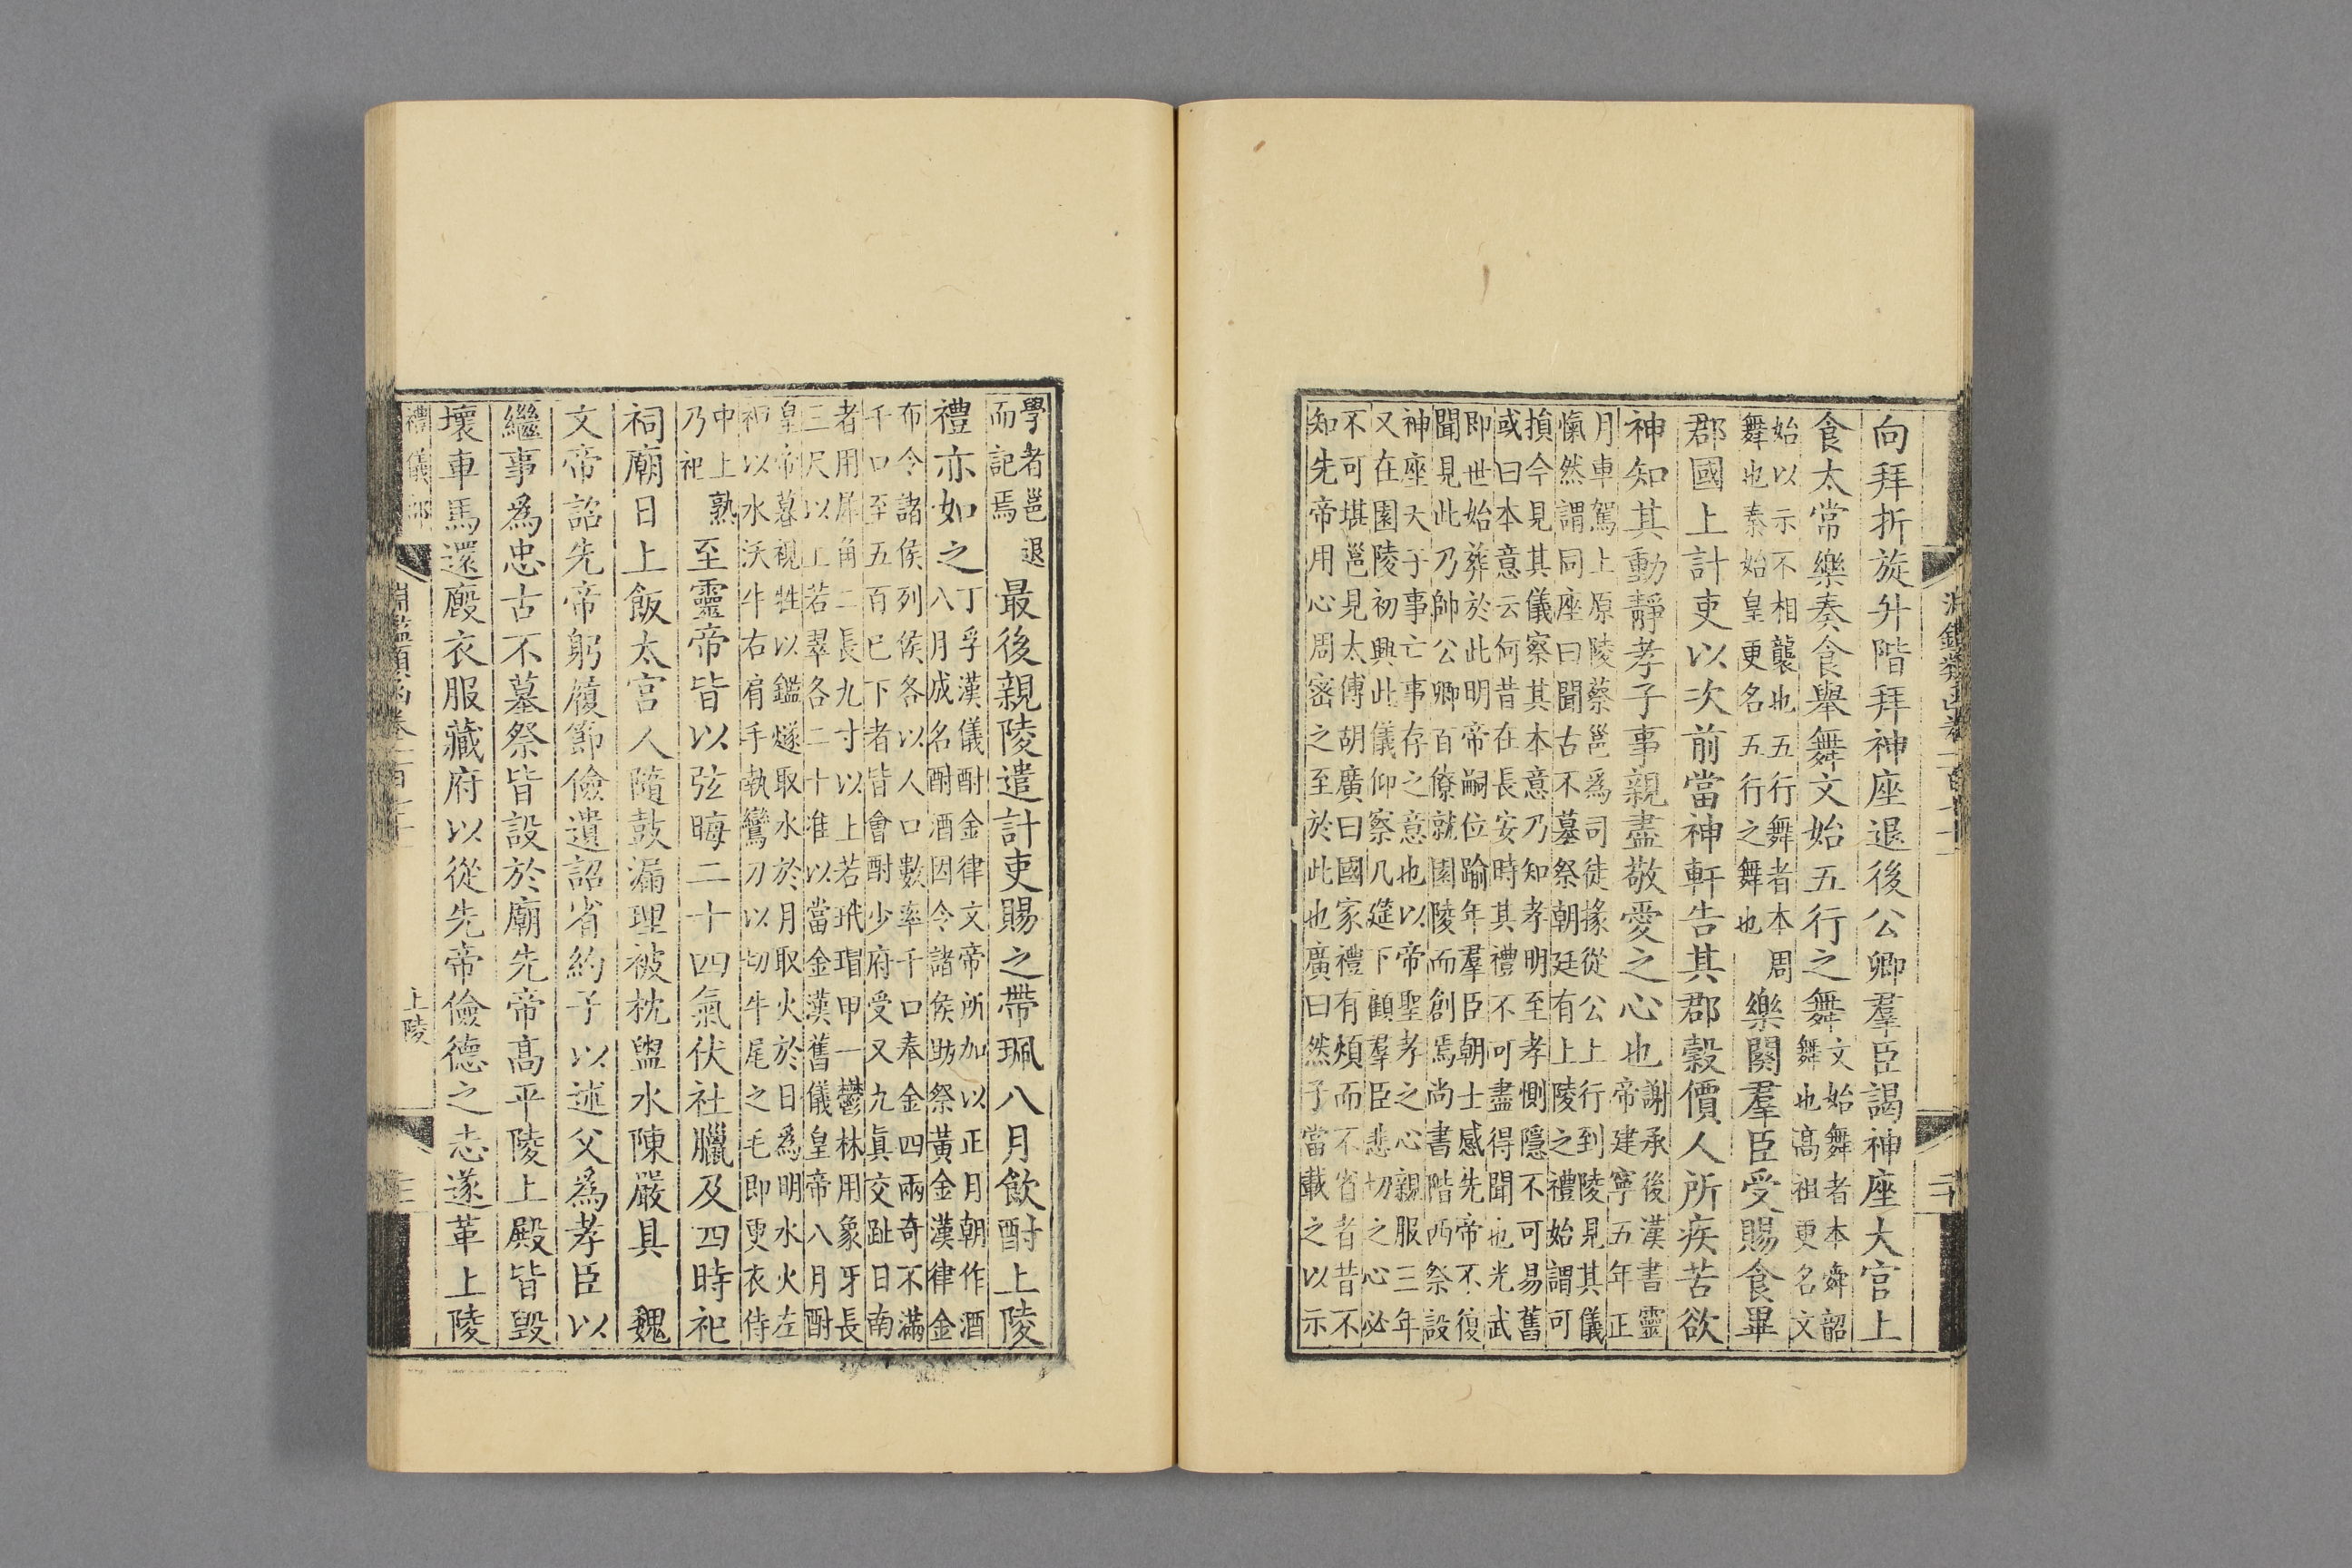 向拜折旋升階拜神座退後公卿羣臣謁神座大官上
食太常樂奏食舉舞文始五行之舞
文始舞者本舜韶
舞也高祖更名文
始以示不相襲也五行舞者本周
舞也秦始皇更名五行之舞也
樂闋羣臣受賜食畢
郡國上計吏以次前當神軒告其郡穀價人所疾苦欲
神知其動靜孝子事親盡敬愛之心也
謝承後漢書靈
帝建寧五年正
月車駕上原陵蔡邕爲司徒掾從公上行到陵見其儀
愾然謂同座曰聞古不墓祭朝廷有上陵之禮始謂可
損今見其儀察其本意乃知孝明至孝惻隱不可易舊
或曰本意云何昔在長安時其禮不可盡得聞也光武
即世始葬於此明帝嗣位踰年羣臣朝士感先帝不復
聞見此乃帥公卿百僚就園陵而創焉尚書階西祭設
神座天子事亡事存之意也以帝聖孝之心親服三年
又在園陵初興此儀仰察几筵下顧羣臣悲切之心必
不可堪邕見太傅胡廣曰國家禮有煩而不省者昔不
知先帝用心周密之至於此也廣曰然子當載之以示
學者邕退
而記焉
最後親陵遣計吏賜之帶珮八月飲酎上陵
禮亦如之
丁孚漢儀酎金律文帝所加以正月朝作酒
八月成名酎酒因令諸侯助祭黃金漢律金
布令諸侯列侯各以人口數率千口奉金四兩奇不滿
千口至五百已下者皆會酎少府受又九真交趾日南
者用犀角二長九寸以上若玳瑁甲一鬱林用象牙長
三尺以上若翠各二十准以當金漢舊儀皇帝八月酎
皇帝暮視牲以鑑燧取水於月取火於日爲明水火左
袒以水沃牛右肩手執鸞刀以切牛尾之毛即更衣侍
中上熟
乃祀
至靈帝皆以弦晦二十四氣伏社臘及四時祀
祠廟日上飯太官人隨鼓漏理被枕盥水陳嚴具　魏
文帝詔先帝躬履節儉遺詔省約子以述父爲孝臣以
繼事爲忠古不墓祭皆設於廟先帝高平陵上殿皆毀
壞車馬還廄衣服藏府以從先帝儉德之志遂革上陵
禮儀部
淵鑑類函卷
上陵